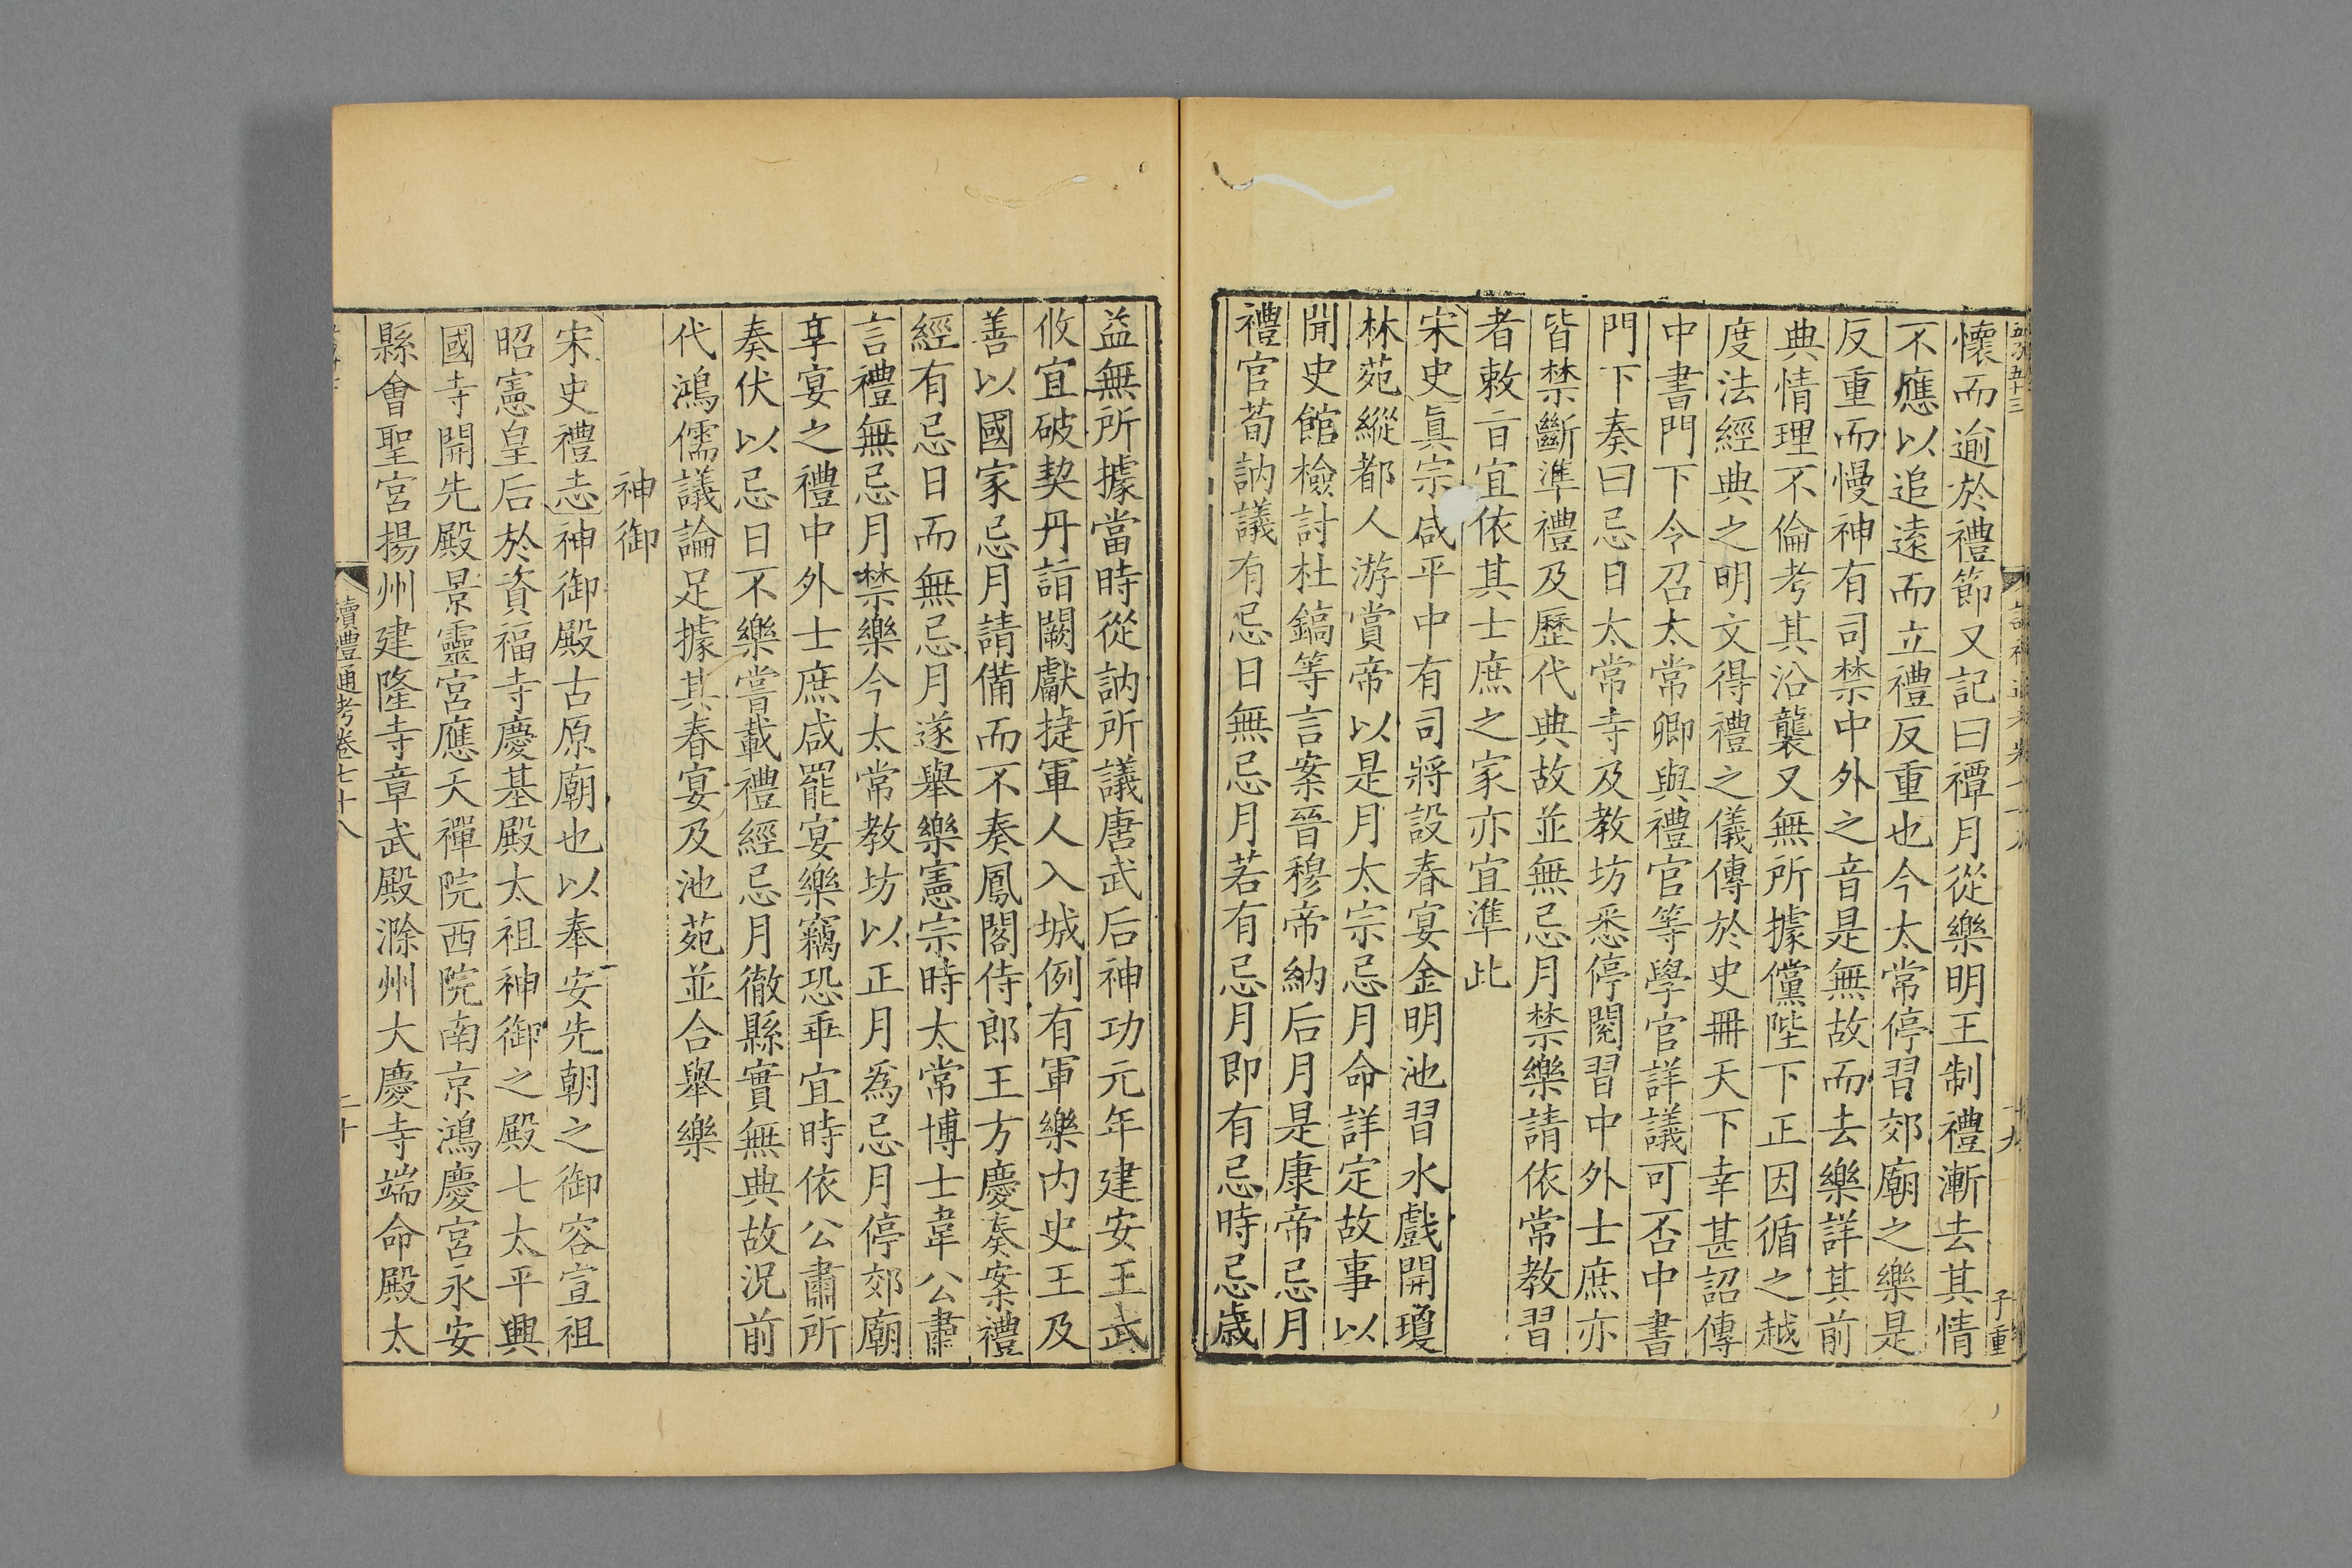 懷而逾於禮節又記曰禫月從樂明王制禮漸去其情
不應以追遠而立禮反重也今太常停習郊廟之樂是
反重而慢神有司禁中外之音是無故而去樂詳其前
典情理不倫考其沿襲又無所據儻陛下正因循之越
度法經典之明文得禮之儀傳於史冊天下幸甚詔傳
中書門下令召太常卿與禮官等學官詳議可否中書
門下奏曰忌日太常寺及教坊悉停閱習中外士庶亦
皆禁斷準禮及歷代典故並無忌月禁樂請依常教習
者敕旨宜依其士庶之家亦宜準此
宋史真宗咸平中有司將設春宴金明池習水戲開瓊
林苑縱都人游賞帝以是月太宗忌月命詳定故事以
聞史館檢討杜鎬等言案晉穆帝納后月是康帝忌月
禮官荀訥議有忌日無忌月若有忌月即有忌時忌歲
益無所據當時從訥所議唐武后神功元年建安王武
攸宜破契丹詣闕獻捷軍人入城例有軍樂内史王及
善以國家忌月請備而不奏鳳閣侍郎王方慶奏案禮
經有忌日而無忌月遂舉樂憲宗時太常博士韋公肅
言禮無忌月禁樂今太常教坊以正月為忌月停郊廟
享宴之禮中外士庶咸罷宴樂竊恐乖宜時依公肅所
奏伏以忌日不樂嘗載禮經忌月徹縣實無典故況前
代鴻儒議論足據其春宴及池苑並合舉樂
神御
宋史禮志神御殿古原廟也以奉安先朝之御容宣祖
昭憲皇后於資福寺慶基殿太祖神御之殿七太平興
國寺開先殿景靈宮應天禪院西院南京鴻慶宮永安
縣會聖宮揚州建隆寺章武殿滁州大慶寺端命殿太
讀禮通考卷七十八
二十